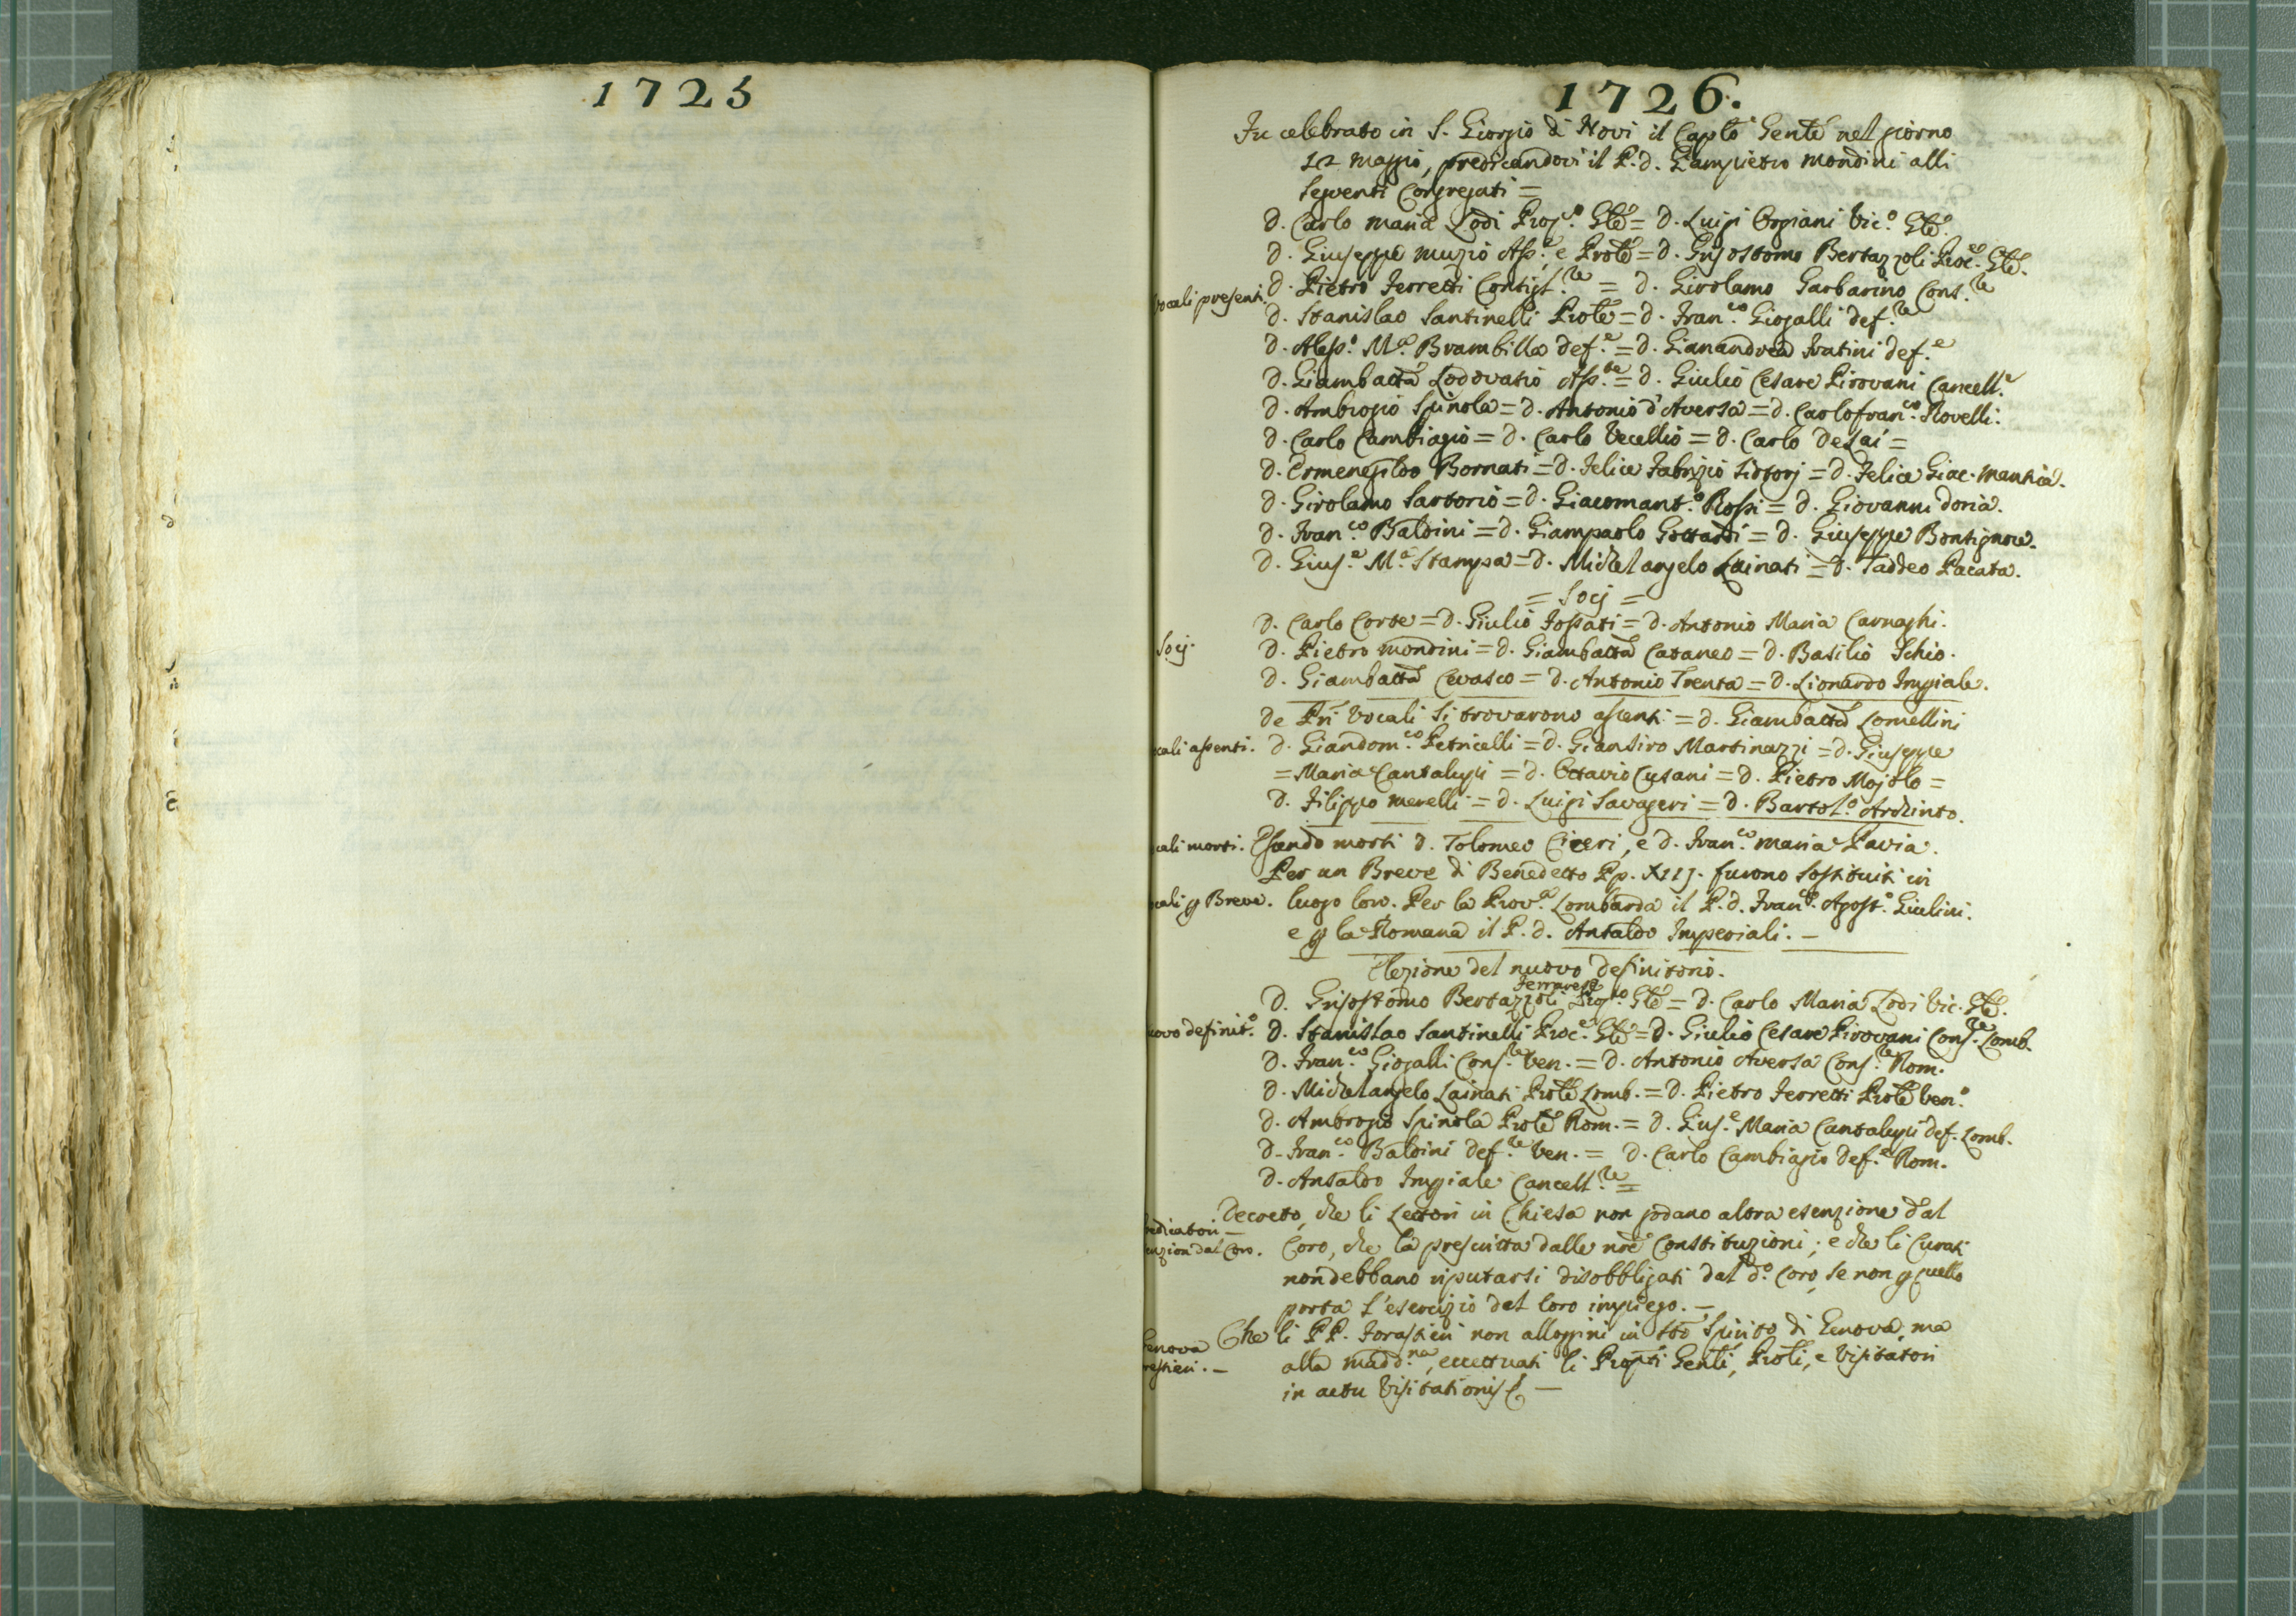 1725
1726.
Fu celebrato in S. Giorgio di Novi il Caplo Genle nel giorno
12 Maggio, predicandovi il P. D. Giampietro Mondini alli
seguenti Congregati =
D. Carlo Maria Lodi Prop.o Gle = D. Luigi Orgiani Vic.o Gle.
D. Giuseppe Muzio Ass.e, e Prole = D. Grisostomo Bertazzoli Proc.e Gle.
vocali presenti. D. Pietro Ferretti Consigl.re = D. Girolamo Garbarino Cons.re
D. Stanislao Santinelli Prole = D. Fran.co Giogalli def.re
D. Aless.o M.a Brambilla Def.e = D. Gianandrea Fratini def.e
D. Giambatta Lodovasio Ass.te = D. Giulio Cesare Pirovani Cancell.e
D. Ambrogio Spinola = D. Antonio d'Aversa = D. Carlofran.co Rovelli.
D. Carlo Cambiagio = D. Carlo Vecellio = D. Carlo Desai =
D. Ermenegildo Bornati = D. Felice Fabrizio = D. Felice Giac.
D. Girolamo Sartorio = D. Giacomant.o Rossi = D. Giovanni Doria.
D. Fran.co Baldini = D. Giampaolo Gottardi = D. Giuseppe Bontignore.
D. Gius.e M.a Stampa = D. Michelangelo Lainati = D. Taddeo Pacata.
= Socj =
D. Carlo Corte = D. Giulio Fossati = D. Antonio Maria Carnaghi.
Socj. D. Pietro Mondini = D. Giambatta Cataneo = D. Basilio Schio.
D. Giambatta Cevasco = D. Antonio Trenta = D. Lionardo Impiale.
De Pri Vocali si trovarono assenti = D. Giambatta Lomellini
cali assenti. D. Giandom.co Petricelli = D. Giansiro Martinazzi = D. Giuseppe
= Maria Cantalupi = D. Ottavio Cusani = D. Pietro Mojolo =
D. Filippo Merelli = D. Luigi Savageri = D. Bartol.o Archinto.
cali morti. Essendo morti D. Tolomeo Ciceri, e D. Fran.co Maria Pavia.
Per un Breve di Benedetto Pp. XIIJ. furono sostituiti in
cali p Breve. luogo loro. Per la Prov.a Lombarda il P. D. Fran.co Agost.o Giulini.
e p la Romana il P. D. Ansaldo Imperiali. —
Elezione del nuovo Definitorio.
Ferrarese
D. Grisostomo Bertazzoli Prop.to Gle = D. Carlo Maria Lodi Vic. Gle.
uovo definit.o D. Stanislao Santinelli Proc.e Gle = D. Giulio Cesare Pirovani Cons.re Lomb.
D. Fran.co Giogalli Cons.re Ven. = D. Antonio Aversa Cons.re Rom.
D. Michelangelo Lainati Prole Lomb. = D. Pietro Ferretti Prole Ven.o
D. Ambrogio Spinola Prole Rom. = D. Gius.e Maria Cantalupi def. Lomb.
D. Fran.co Baldini Def.re Ven. = D. Carlo Cambiagio Def.e Rom.
D. Ansaldo Impiale Cancell.re =
redicatori — Decreto, che li Lettori in Chiesa non godano altra esenzione dal
enzion dal Coro. Coro, che la prescritta dalle nre Constituzioni; e che li Curati
non debbano riputarsi disobbligati dal d.o Coro, se non p quello
porta l'esercizio del loro impiego. —
enova Che li PP. Forastieri non alloggini in Sto Spirito di Genova, ma
restieri. — alla Madd.na, eccettuati li Propti Genli, Proli, e Visitatori
in actu Visitationis